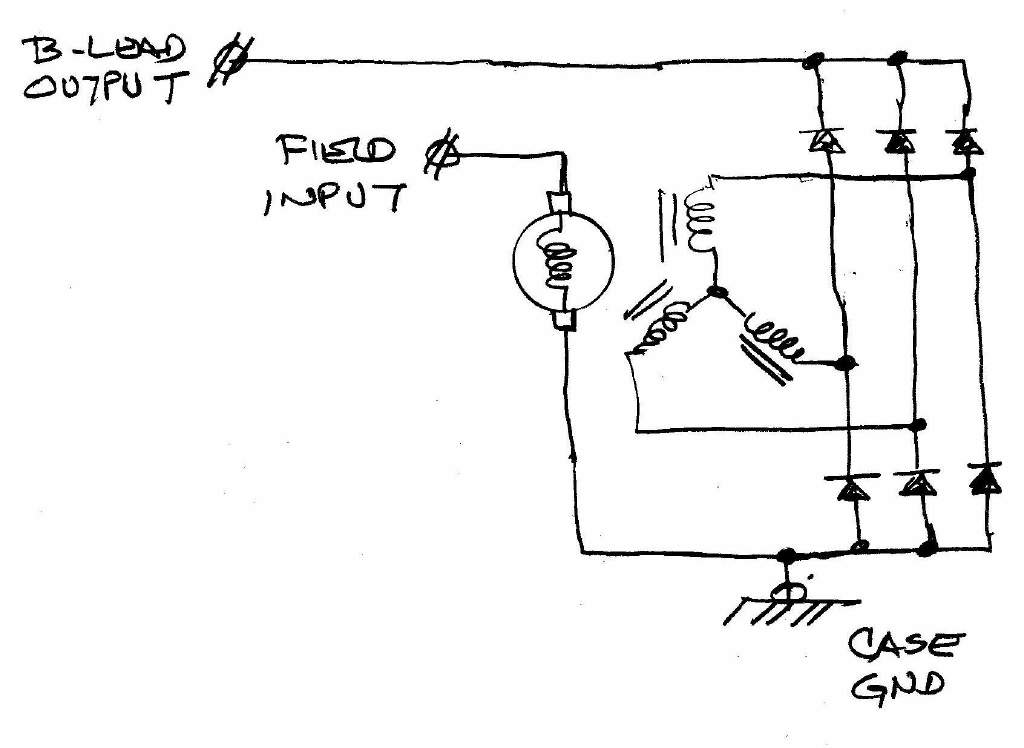 B-LEAD
OUTPUT
FIELD
INPUT
CASE
GND